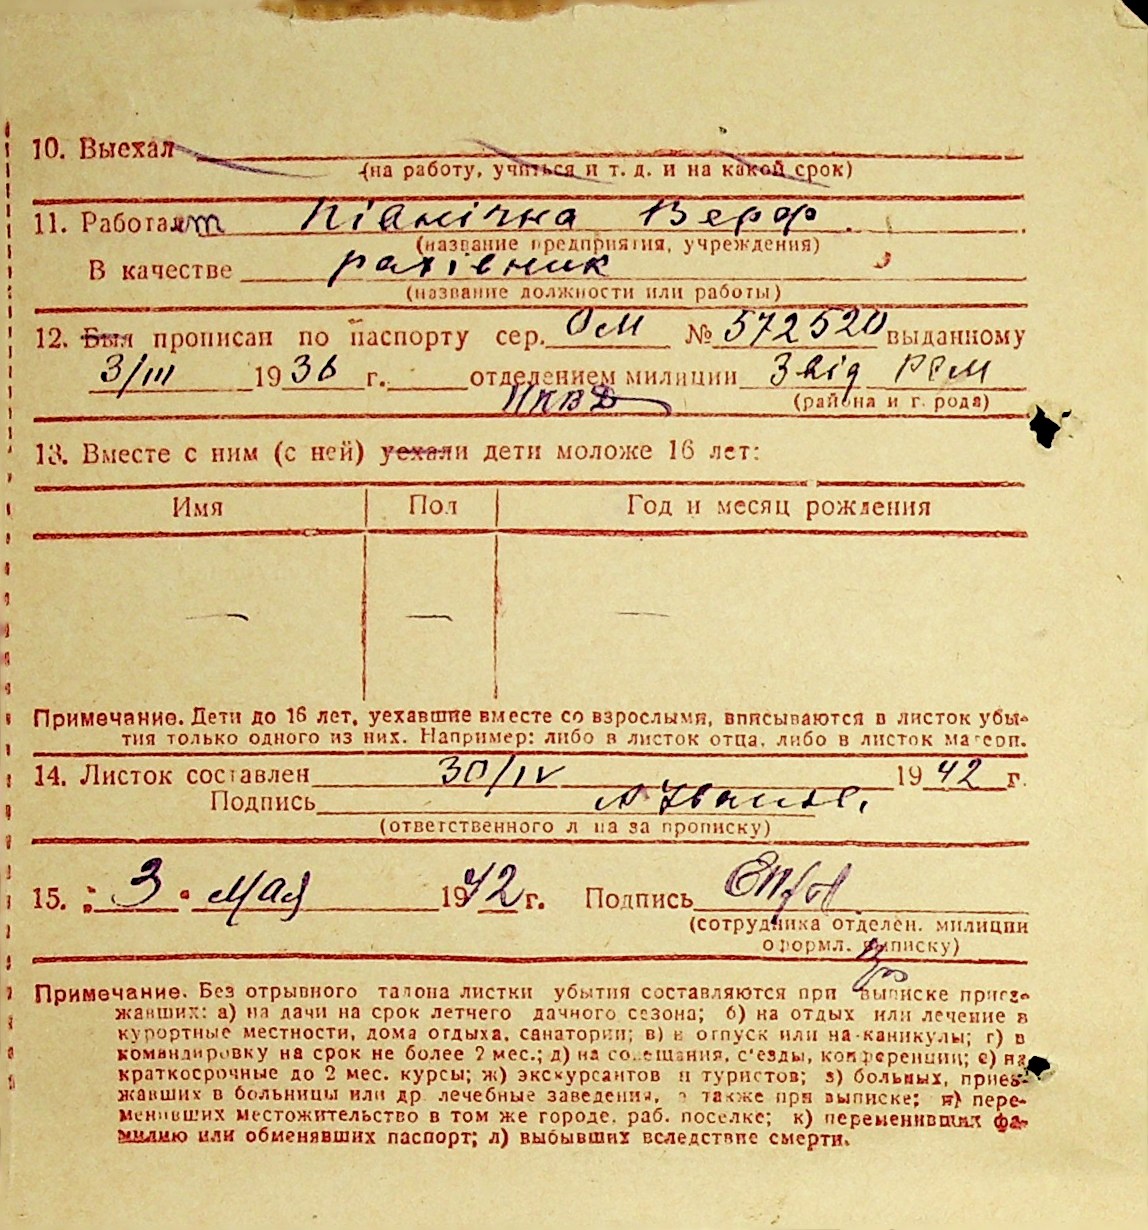 10. Выехал
(на работу, учиться и т. д. и на какой срок)
11. Работает Північна Верф
(название предприятия, учреждения)
В качестве рахівник
(название должности или работы)
12. Был прописан по паспорту сер. ОМ № 572520 выданному
3/III 1936 г. отделением милиции 3 від РСМ
НКВД (района и города)
13. Вместе с ним (с ней) уехали дети моложе 16 лет:
Имя Пол Год и месяц рождения
— — —
Примечание. Дети до 16 лет, уехавшие вместе со взрослыми, вписываются в листок убы-
тия только одного из них. Например: либо в листок отца, либо в листок матери.
14. Листок составлен 30/IV 1942 г.
Подпись
(ответственного лица за прописку)
15. „ 3 " Мая 1942 г. Подпись
(сотрудника отделен. милиции
оформл. выписку)
Примечание. Без отрывного талона листки убытия составляются при выписке приез-
жавших: а) на дачи на срок летнего дачного сезона; б) на отдых или лечение в
курортные местности, дома отдыха, санатории; в) в отпуск или на каникулы; г) в
командировку на срок не более 2 мес.; д) на совещания, с'езды, конференции; е) на
краткосрочные до 2 мес. курсы; ж) экскурсантов и туристов; з) больных, приез-
жавших в больницы или др. лечебные заведения, а также при выписке; и) пере-
менивших местожительство в том же городе, раб. поселке; к) переменивших фа-
милию или обменявших паспорт; л) выбывших вследствие смерти.